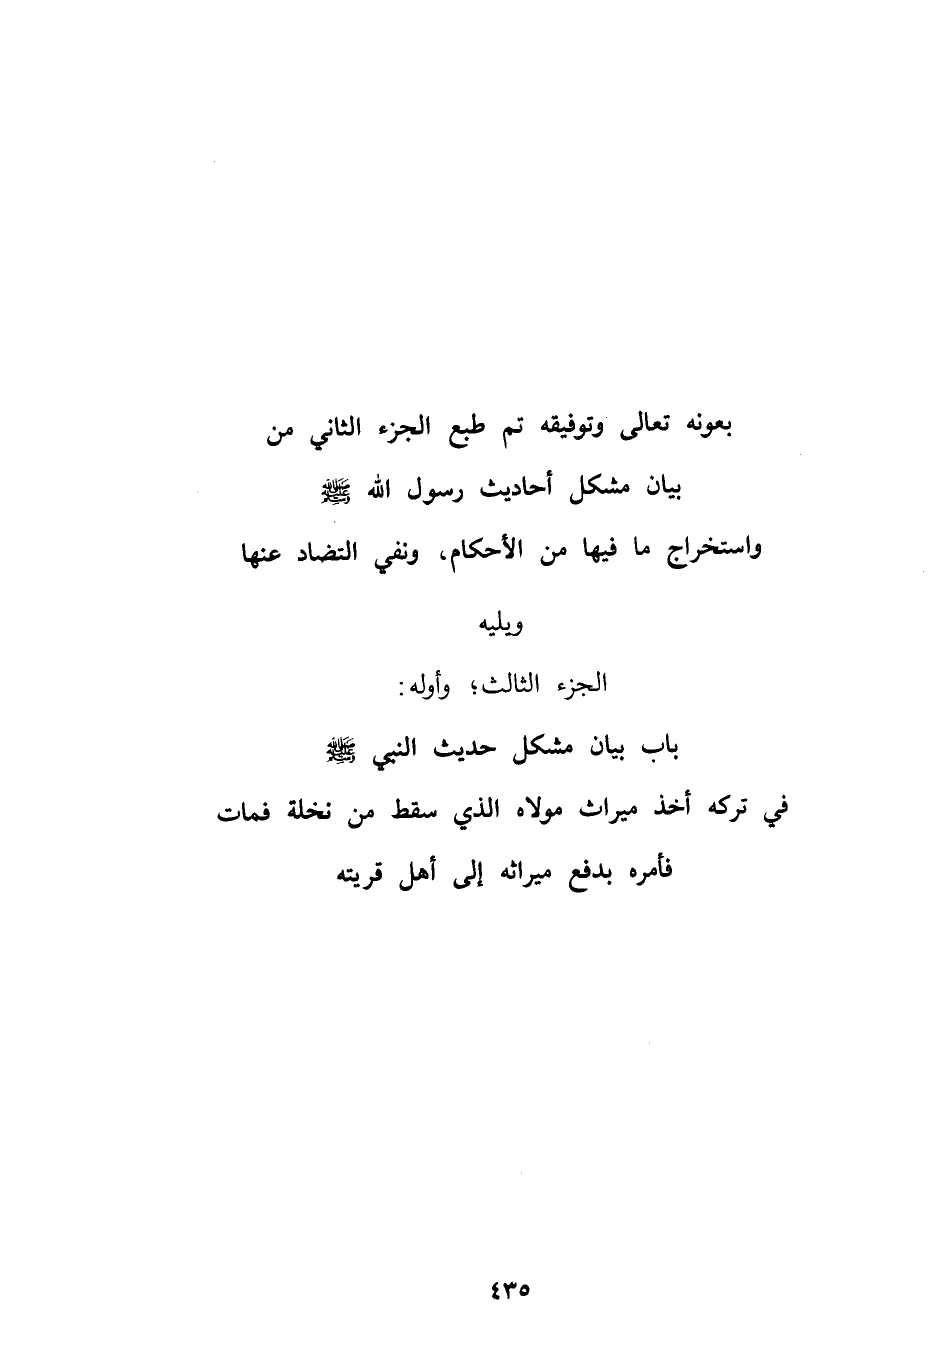 بعونه تعالى وتوفيقه تم طبع الجزء الثاني من
بيان مشكل أحاديث رسول الله ﷺ
واستخراج ما فيها من الأحكام، ونفي التضاد عنها
ويليه
الجزء الثالث؛ وأوله:
باب بيان مشكل حديث النبي ﷺ
في تركه أخذ ميراث مولاه الذي سقط من نخلة فمات
فأمره بدفع ميراثه إلى أهل قريته
٤٣٥